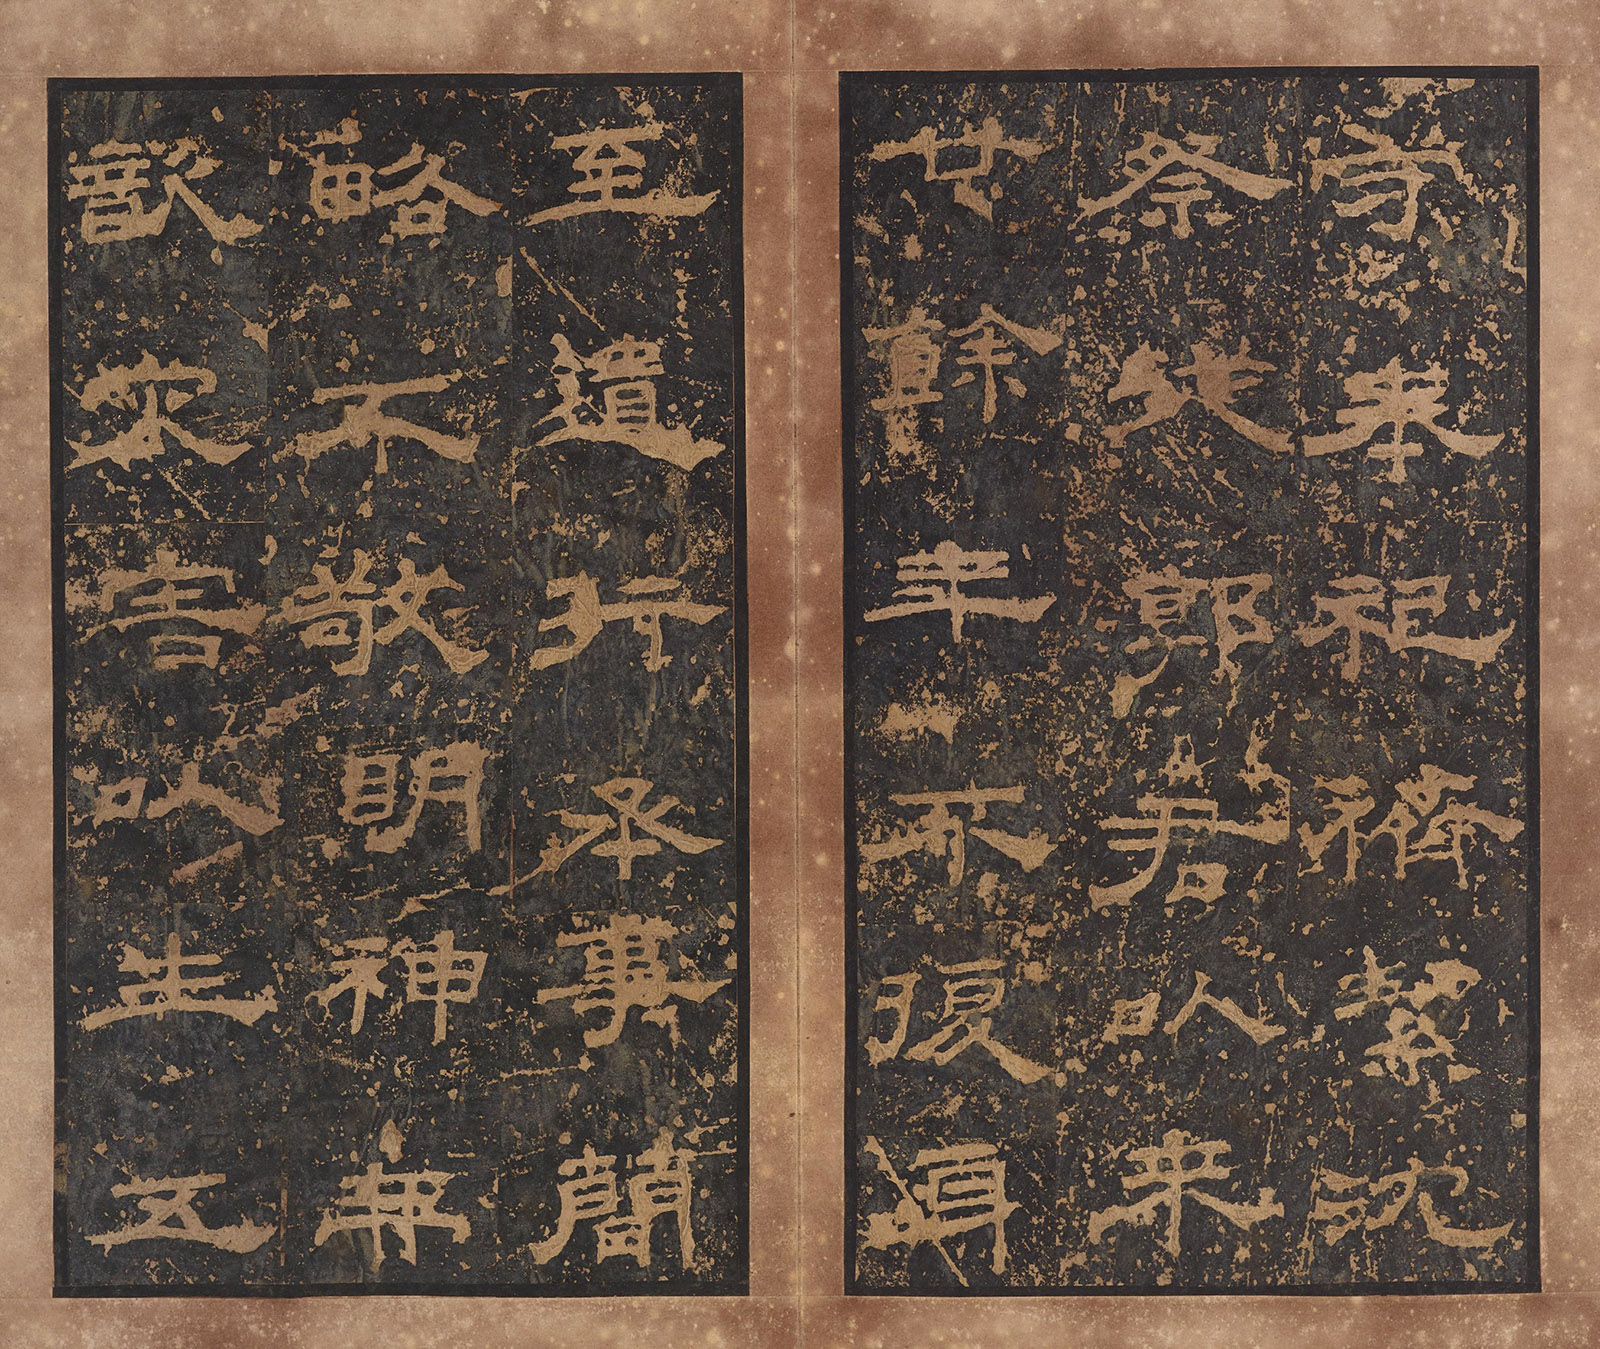 守奉祀䄢絜沈
祭從郭君以來
廿餘年不復
至遣行丞事簡
略不敬明神弗
歆灾害以生五